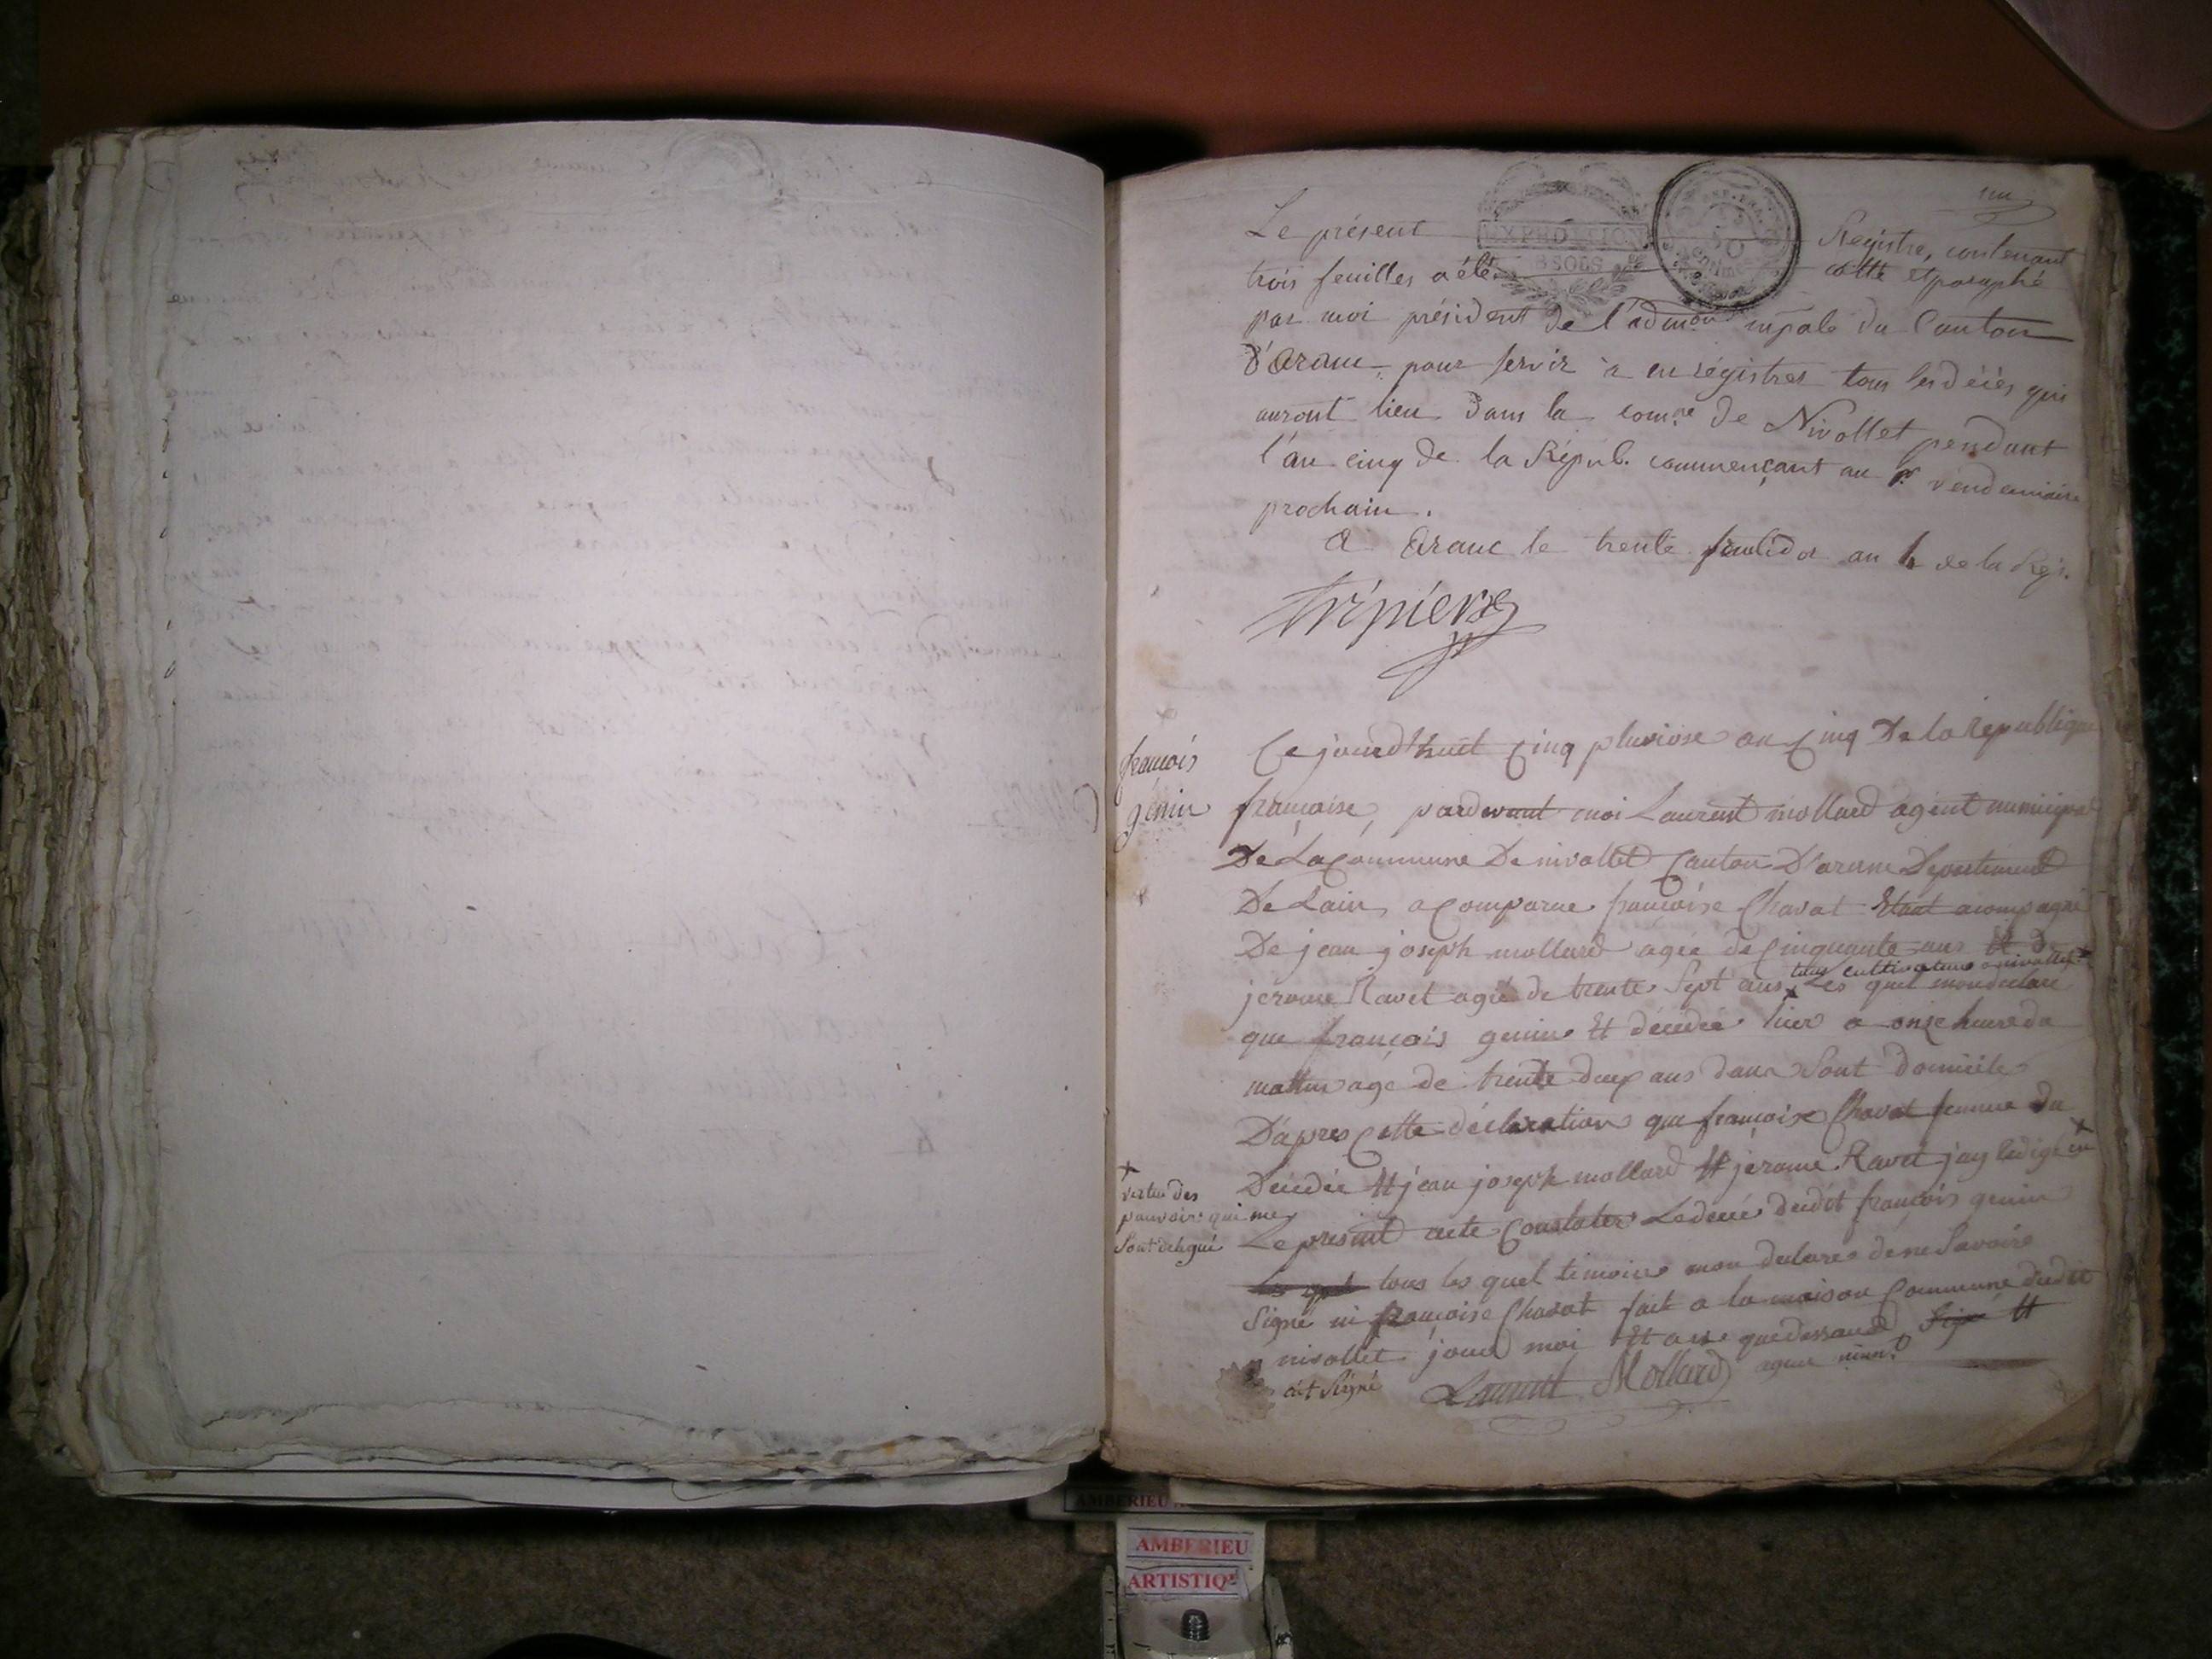 un
Le présent Registre, contenant
EXPEDITION
8 SOLS
50
trois feuilles a été cotté et paraphé
par moi président de l'admon mpale du Canton
d'Aranc, pour servir à enrégistrer tous les décès qui
auront lieu dans la comne de Nivollet pendant
l'an cinq de la Répub. commençant au 1er vendemiaire
prochain.
a Aranc le trente fructidor an 4 de la Rép.
Tripier
françois
genin
Ce jourd'huit cinq pluviose an cinq De la republique
francaise, pardevant moi Laurent mollard agent municipal
De La Commune De nivollet Canton D'aranc Departement
De Lain, a Comparue françoise Chavat Etant acompagné
De jean joseph mollard agée de cinquante ans Et De
tous cultivateurs a nivollet
jerome Ravet agé de trente Sept ans x Les quel mon declaré
que francois genin Et décédée hier a onze heure du
mattin age de trente deux ans dans Sont domicile
D'apres Cette déclaration que francoise Chavat femme du
Decedée Et jean joseph mollard Et jérome Ravet jay Redigé en x
x
vertu des
pouvoirs qui me
Sont délégué
Le present acte Constater Le deces dudit francois genin
tous les quel temoins mon declares de ne Savoir
Signé ni francoise Chavat fait a la maison Commune dudit
nivollet jour moi Et an que dessus Signé Et
ait Signé Laurent Mollard agent mun.
AMBERIEU
AMBERIEU
ARTISTIQ